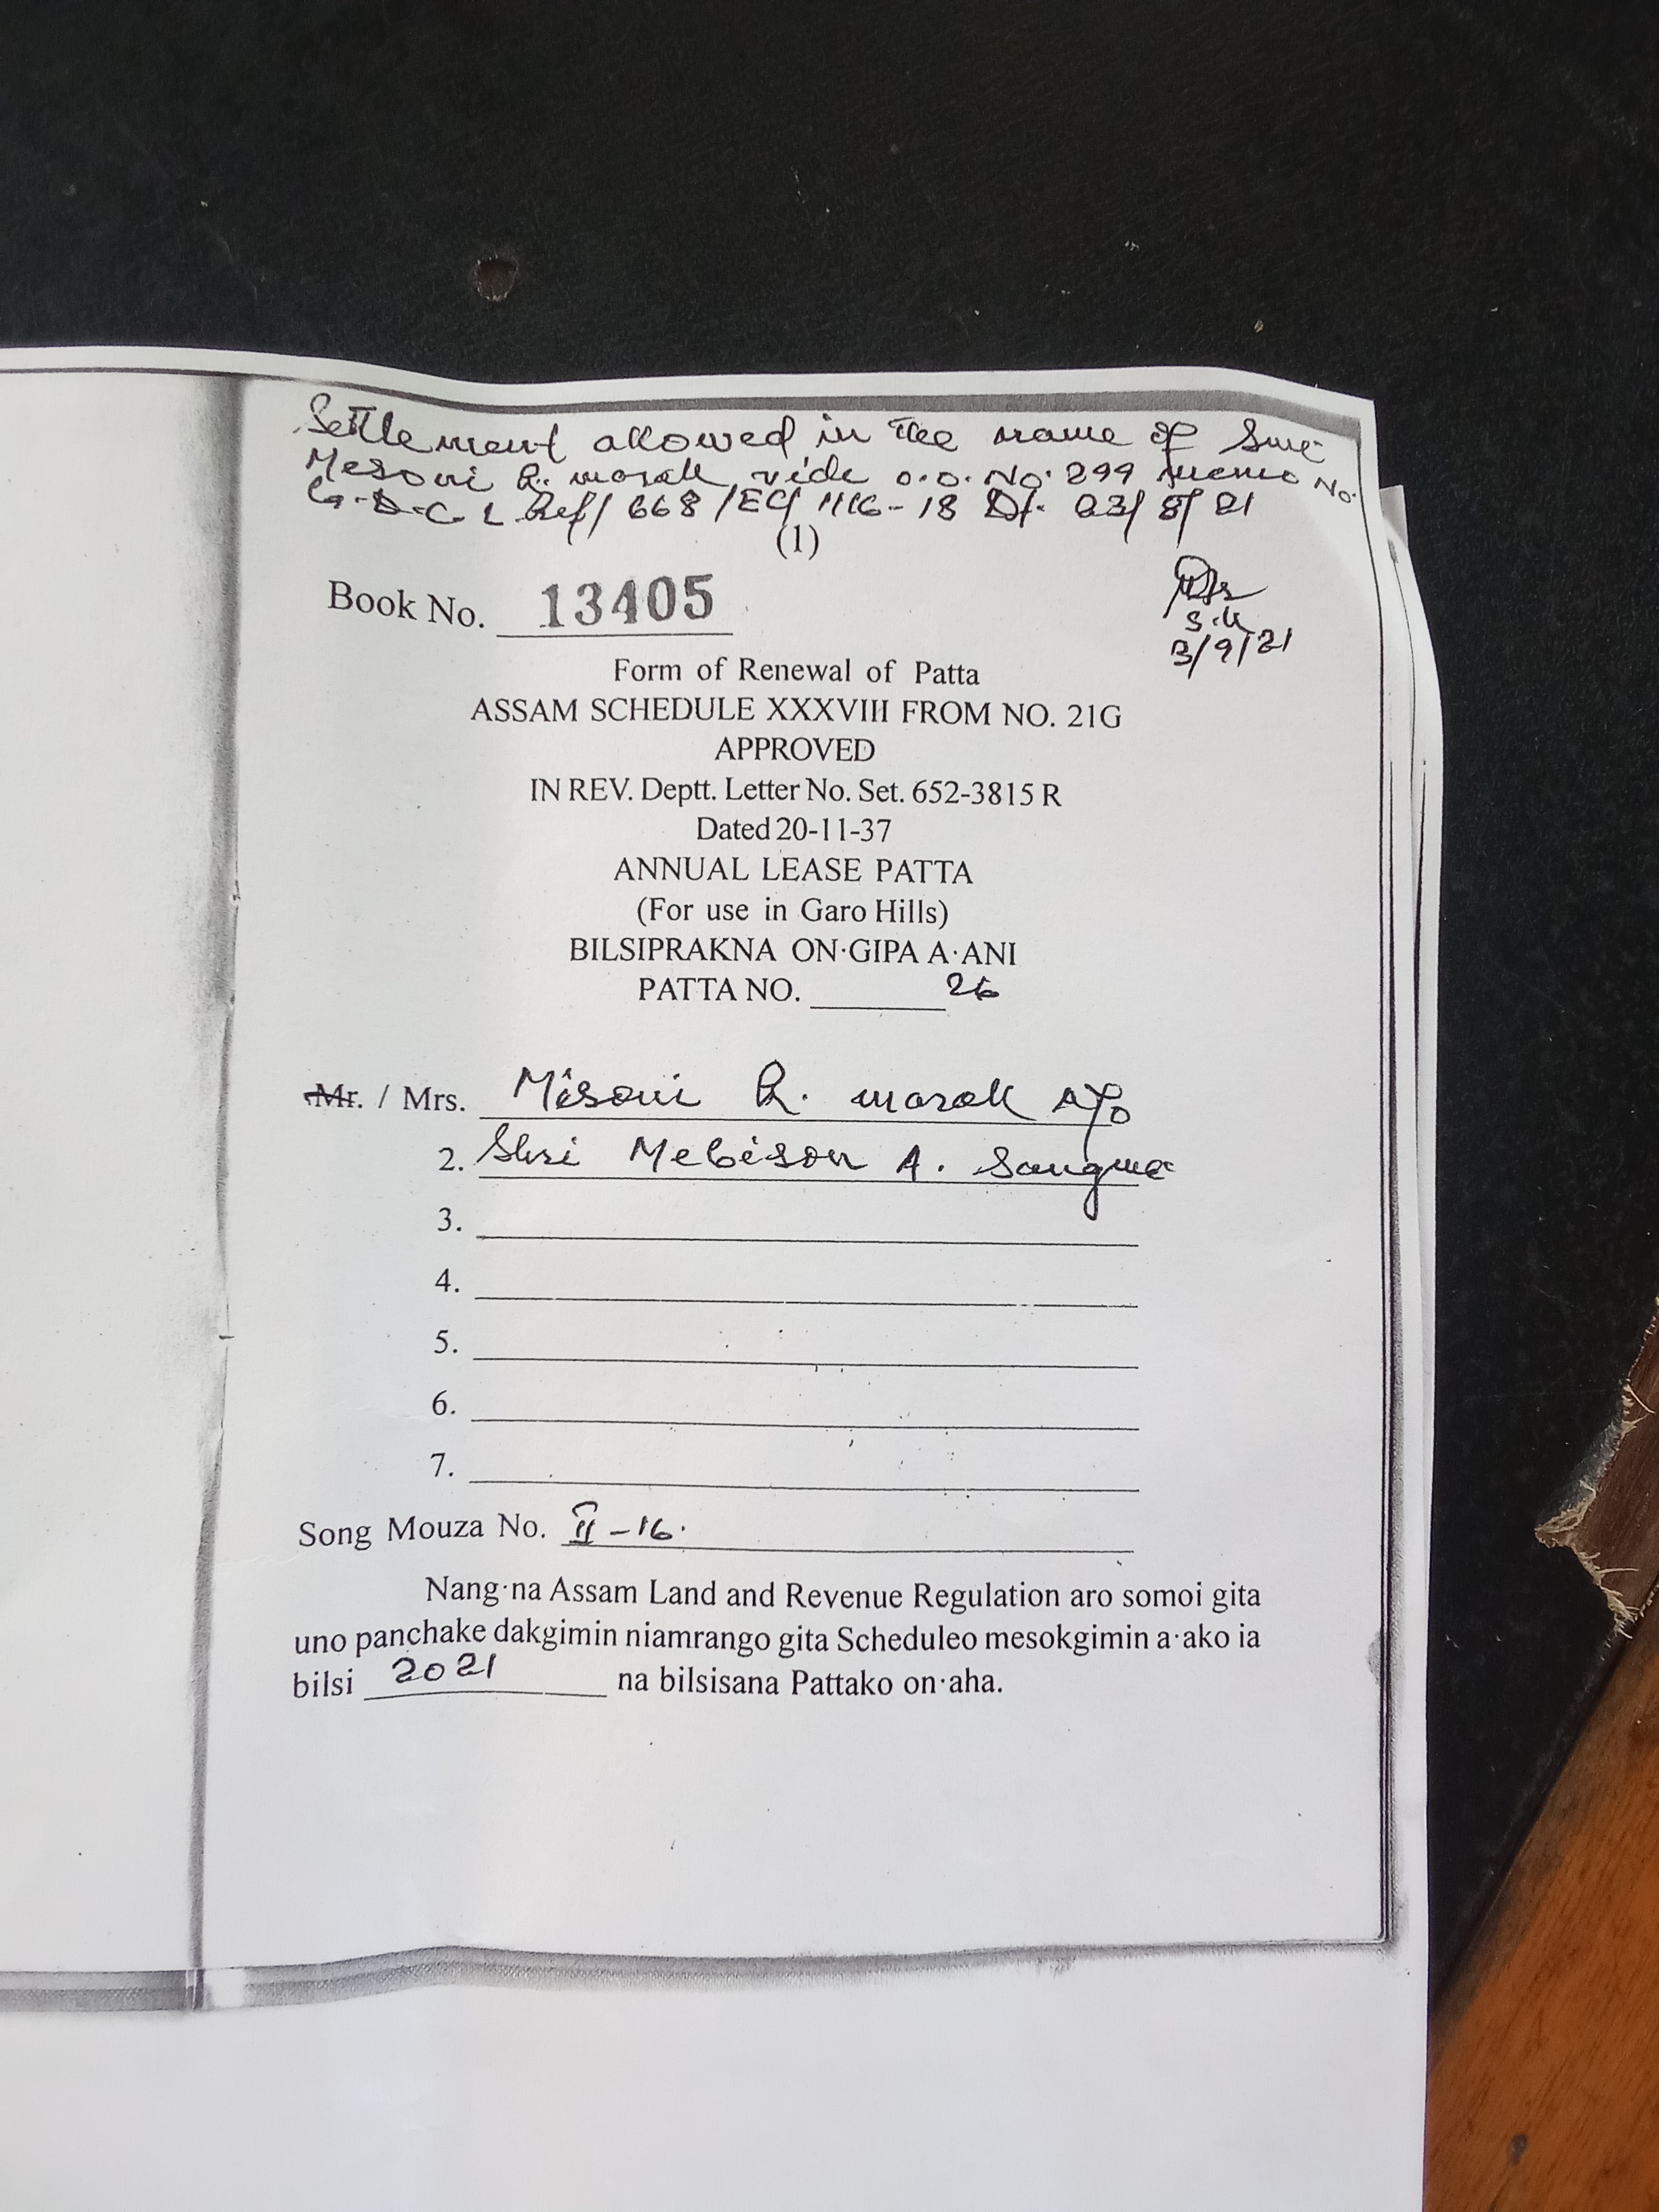 Settlement allowed in the name of Smt
Mesoni R. marak vide o.o. No. 299 memo No.
G.D.C L Ref/ 668 /EC/ 1116-18 Dt. 23/ 8/ 21
(1)
Book No. 13405
S.K
3/9/21
Form of Renewal of Patta
ASSAM SCHEDULE XXXVIII FROM NO. 21G
APPROVED
IN REV. Deptt. Letter No. Set. 652-3815 R
Dated 20-11-37
ANNUAL LEASE PATTA
(For use in Garo Hills)
BILSIPRAKNA ON·GIPA A·ANI
PATTA NO. 26
Mr. / Mrs. Misoni R. marak
2. Shri Mebison A. Sangma
3.
4.
5.
6.
7.
Song Mouza No. II-16.
Nang·na Assam Land and Revenue Regulation aro somoi gita
uno panchake dakgimin niamrango gita Scheduleo mesokgimin a·ako ia
bilsi 2021 na bilsisana Pattako on·aha.